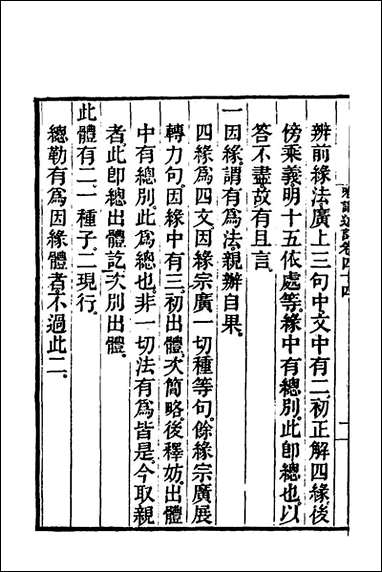 成唯識論述記卷四十四
辨前緣法廣上三句中文中有二初正解四緣後
傍乘義明十五依處等緣中有總別此卽總也以
答不盡故有且言
一因緣謂有爲法親辦自果
四緣爲四文因緣宗廣一切種等句餘緣宗廣展
轉力句因緣中有三初出體次簡略後釋妨出體
中有總別此爲總也非一切法有爲皆是今取親
者此卽總出體訖次別出體
此體有二一種子二現行
總勒有爲因緣體者不過此二